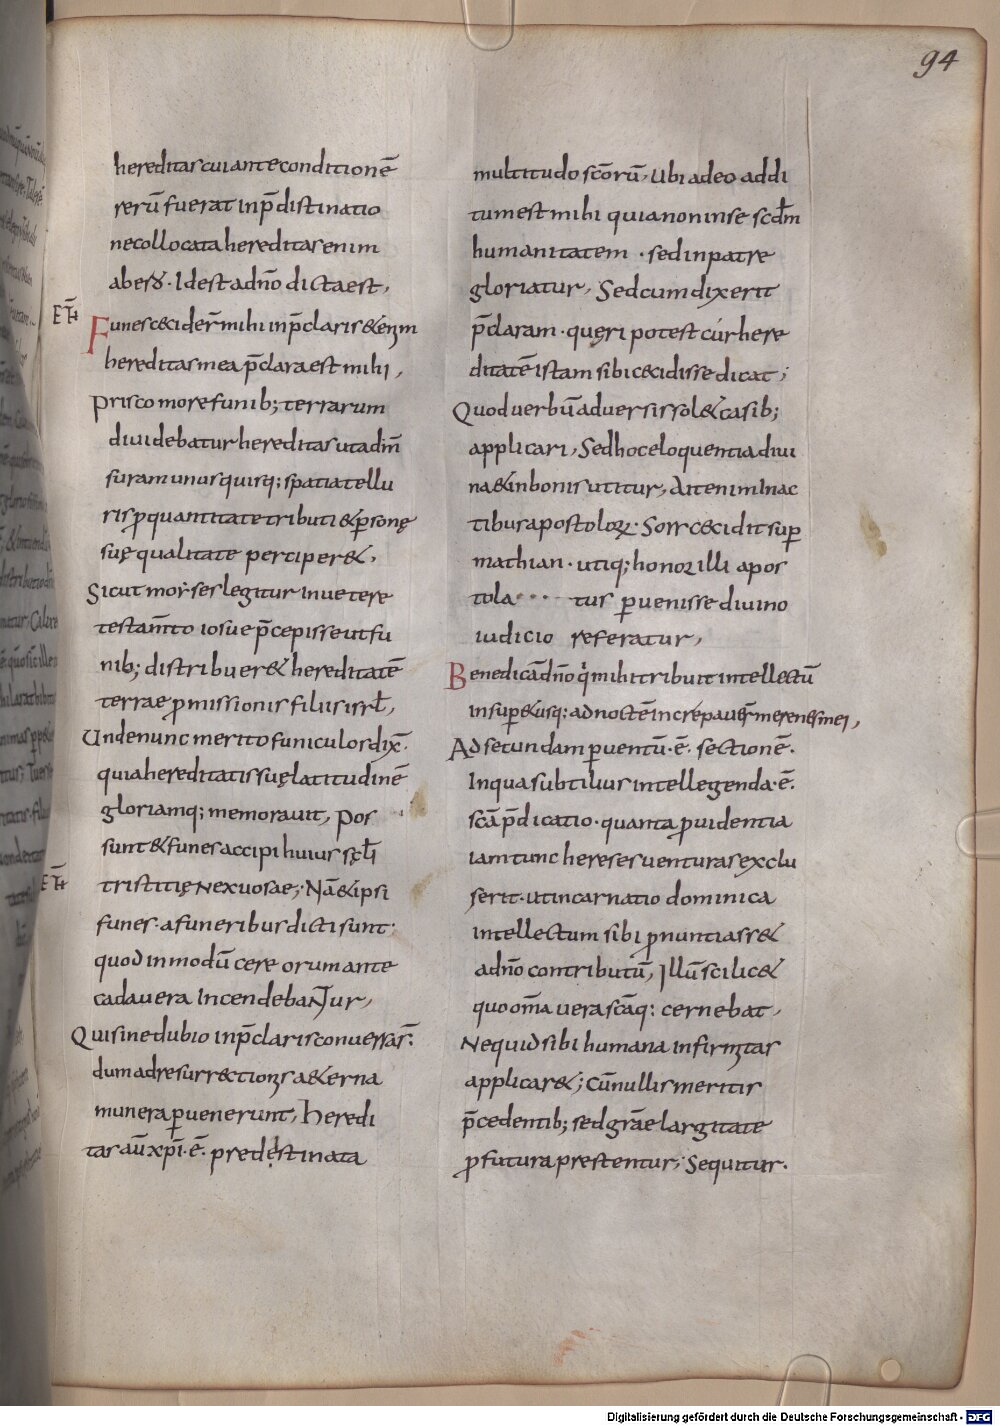 94
hereditas cui ante conditionē
rerū fuerat inp̄distinatio
ne collocata hereditas enim
ab es&. Idest adn̄o dicta est,
Funes cecider̄ mihi inp̄claris &enim
hereditas mea p̄clara est mihi,
prisco more funib; terrarum
diuidebatur hereditas utad m̄
suram unus quisq; spatia tellu
ris p quantitate tributi & psonę
suę qualitate perciper&,
Sicut moyses legitur Inuetere
testam̄to iosue p̄cepisse ut fu
nib; distribuer& hereditatē
terrae pmissionis filiis isrł,
Unde nunc merito funiculos dix̄.
quia hereditatis suę latitudinē
gloriamq; memorauit, pos
sunt & funes accipi huius sęcłi
tristitię Nexuosae; Nā & ipsi
funes. a funeribus dicti sunt;
quod in modū cereorum ante
cadauera Incendebantur,
Qui sine dubio inp̄claris conuersi s̄.
dum ad resurrectionis a&erna
munera puenerunt, heredi
tas aū xp̄i. ē. predestinata
multitudo sc̄orū, Ubi adeo addi
tum est mihi quia non inse scd̄m
humanitatem. sed inpatre
gloriatur, Sed cum dixerit
p̄claram. quęri potest cúr here
ditatē istam sibi cecidisse dicat;
Quod uerbū aduersis sol& casib;
applicari, Sed hoc eloquentia diui
na & in bonis utitur, Ait enim Inac
tibus apostoloꝝ. Sors cecidit sup
mathian. utiq; honor illi apos
tola.... tus puenisse diuino
iudicio referatur,
Benedicā dn̄o qi mihi tribuit intellectū
insup & usq: ad noctē increpauer̄ me renes mei,
Ad secundam puentū. ē. sectionē.
In qua subtilius intellegenda. ē.
sc̄a p̄dicatio. quanta puidentia
iam tunc hereses uenturas exclu
serit. ut incarnatio dominica
intellectum sibi pnuntiass&
adn̄o contributū, Illū scilic&
quo om̄a uera sc̄aq: cernebat,
Nequid sibi humana infirmitas
applicar&; Cū nullis meritis
p̄cedentib; sed gr̄ae largitate
p futura prestentur; Sequitur.
Digitalisierung gefördert durch die Deutsche Forschungsgemeinschaft - DFG